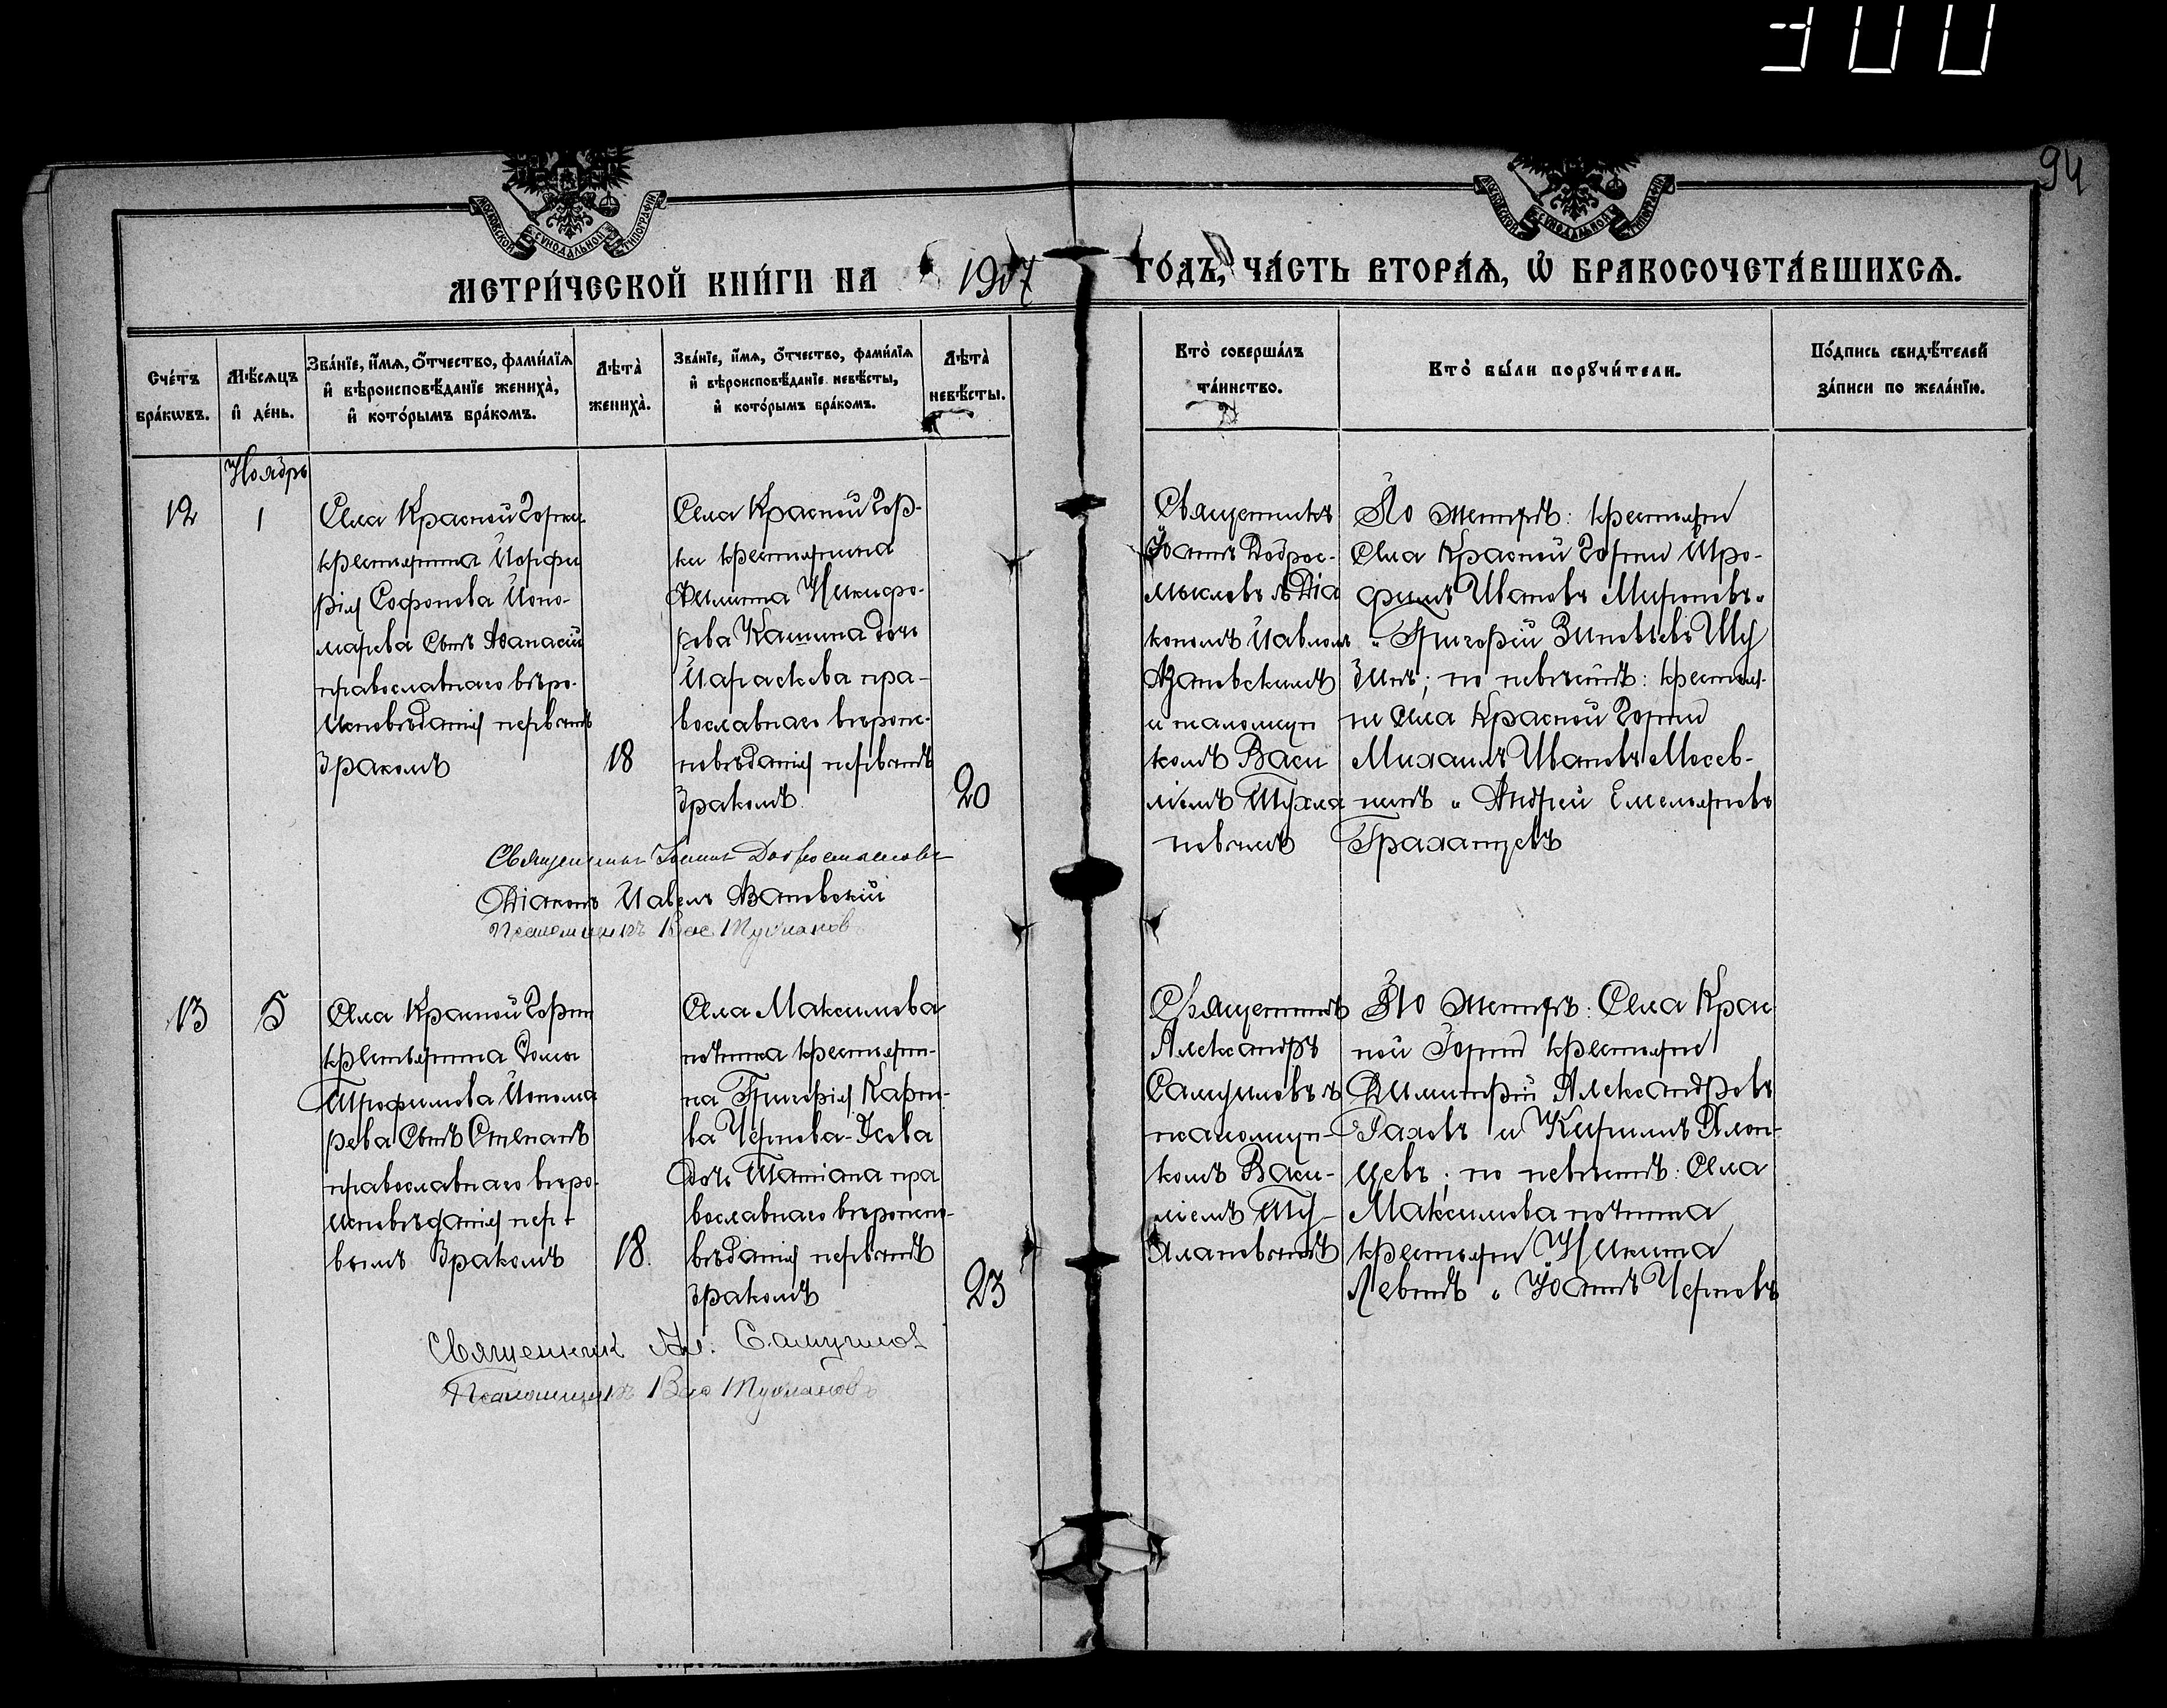 300
94
МОСКОВСКОЙ СѴНОДАЛЬНОЙ ТИПОГРАФІИ
МОСКОВСКОЙ СѴНОДАЛЬНОЙ ТИПОГРАФІИ
МЕТРИ́ЧЕСКОЙ КНИ́ГИ НА 1907 ГО́ДЪ, ЧА́СТЬ ВТОРА́Ѧ, Ѡ҆ БРАКОСОЧЕТА́ВШИХСѦ.
Сче́тъ
бра́кѡвъ.
Мѣ́сяцъ
и҆ де́нь.
Зва́нїе, и҆́мя, ѻ҆́тчество, фами́лїя
и҆ вѣроисповѣ́данїе жениха̀,
и҆ кото́рымъ бра́комъ.
Лѣта̀
жениха̀.
Зва́нїе, и҆́мя, ѻ҆́тчество, фами́лїя
и҆ вѣроисповѣ́данїе невѣ́сты,
и҆ кото́рымъ бра́комъ.
Лѣта̀
невѣ́сты.
Кто̀ соверша́лъ
та́инство.
Кто̀ бы́ли порꙋчи́тели.
По́дпись свидѣ́телей
за́писи по жела́нїю.
Ноябрь
12
1
Села Красной Горки
крестьянина Порфи
рія Софонова Поно-
марева Сынъ Аѳанасій
православнаго вѣро-
исповѣданія первымъ
бракомъ
18
Села Красной Гор-
ки крестьянина
Филиппа Никифо-
рова Кашина дочь
Параскева пра-
вославнаго вѣроис-
повѣданія первымъ
бракомъ
20
Священникъ
Іоаннъ Доброс-
мысловъ съ Діа
кономъ Павломъ
Азановскимъ
и псаломщи
комъ Васи
ліемъ Тухла
новымъ
По женихѣ: крестьяне
Села Красной Горки Про-
фимъ Ивановъ Мироновъ и
Григорій Зиновьевъ Шу
бинъ; по невѣстѣ: крестья-
не Села Красной Горки
Михаилъ Ивановъ Мосев-
нинъ и Андрей Емельяновъ
Граханцевъ
Священникъ Іоаннъ Добросмысловъ
Діаконъ Павелъ Азановскій
Псаломщикъ Вас Тухлановъ
13
5
Села Красной Горки
крестьянина Ѳомы
Трофимова Понома
рева Сынъ Степанъ
православнаго вѣро-
исповѣданія пер-
вымъ бракомъ
18.
Села Максимова
починка крестьяни-
на Григорія Карпо-
ва Чернова-Усова
дочь Татіана пра
вославнаго вѣроиспо-
вѣданія первымъ
бракомъ
23
Священникъ
Александръ
Самуиловъ съ
псаломщи-
комъ Васи-
ліемъ Ту-
хлановымъ
По женихѣ: Села Крас
ной Горки крестьяне
Димитрій Александровъ
Гаховъ и Кириллъ Хлоп-
цевъ; по невѣстѣ: Села
Максимова починка
крестьяне Никита
Левинъ и Іоаннъ Черновъ
Священник Ал. Самуилов
Псаломщикъ Вас Тухлановъ